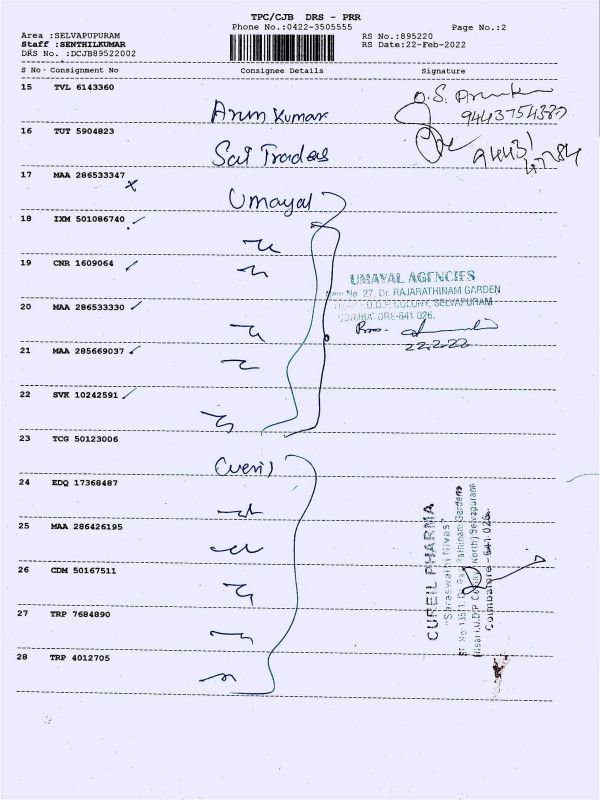 TPC/CJB DRS - PRR
Phone No.:0422-3505555
Page No.:2
Area :SELVAPUPURAM
Staff :SENTHILKUMAR
DRS No. :DCJB89522002
RS No.:895220
RS Date:22-Feb-2022
S No Consignment No Consignee Details Signature
15 TVL 6143360
Arun Kumar
9443754387
16 TUT 5904823
Sai Traders
17 MAA 286533347
x
Umayal
18 IXM 501086740
19 CNR 1609064
UMAYAL AGENCIES
New No. 27, Dr. RAJARATHINAM GARDEN
COLONY, SELVAPURAM
COIMBATORE-641 026.
20 MAA 286533330
22.2.22
21 MAA 285669037
22 SVK 10242591
23 TCG 50123006
Cureil
24 EDQ 17368487
25 MAA 286426195
26 CDM 50167511
27 TRP 7684890
28 TRP 4012705
CUREIL PHARMA
"Saraswathi Nivas"
Coimbatore-641 026.